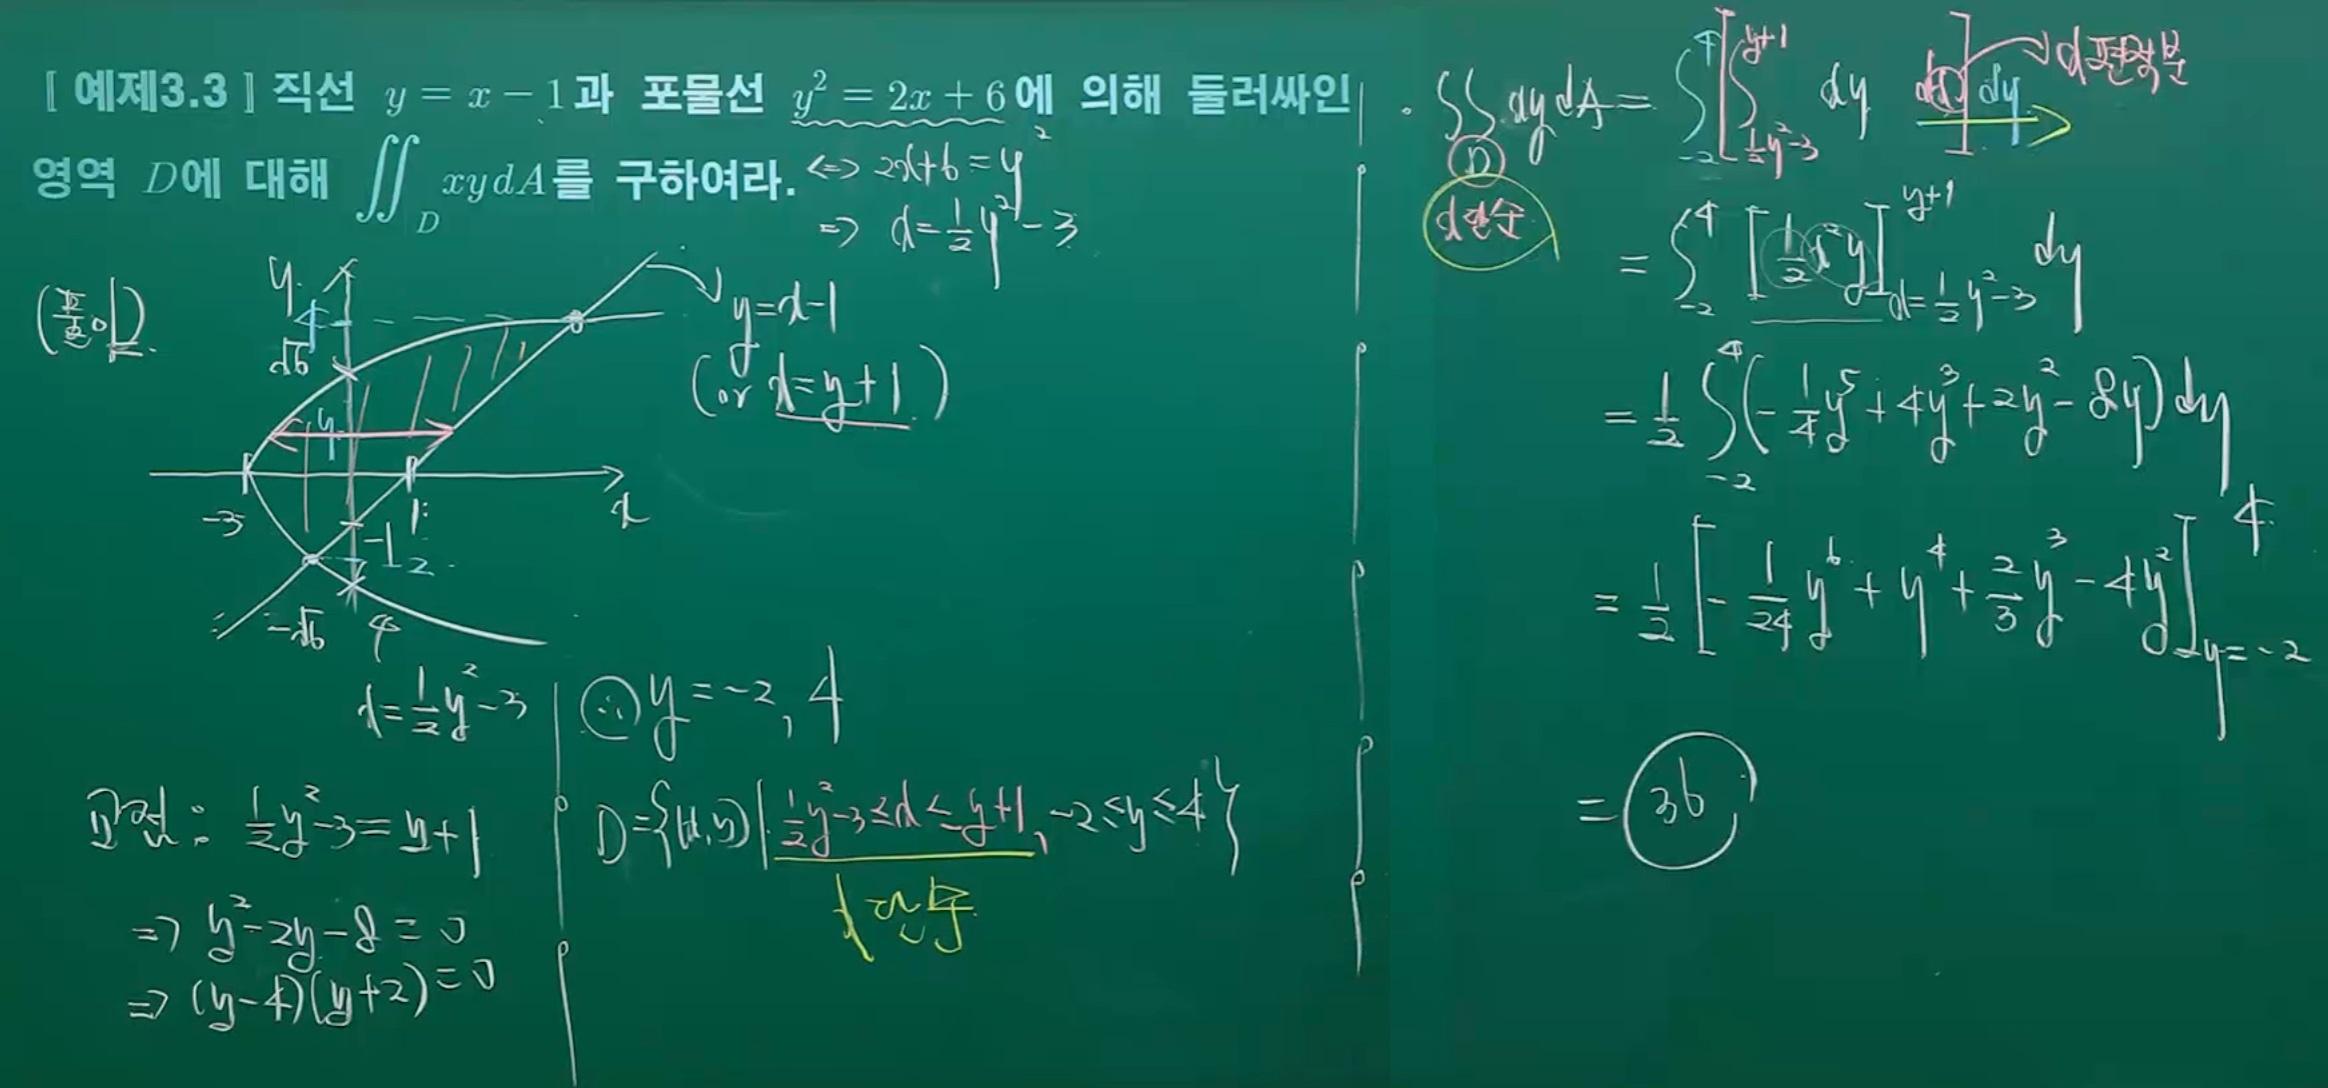 [ 예제3.3 ] 직선 y = x − 1과 포물선 y² = 2x + 6에 의해 둘러싸인
영역 D에 대해 ∬_D xydA를 구하여라.
⟺ 2x+6 = y²
⇒ x = 1/2 y² − 3
(풀이)
y
4
√6
y
y = x−1
(or x = y+1)
−3
1
x
−1
−2
−√6
x = 1/2 y² − 3
교점 : 1/2 y² − 3 = y+1
⇒ y² − 2y − 8 = 0
⇒ (y−4)(y+2) = 0
∴ y = −2, 4
D = {(x,y) | 1/2 y² − 3 ≤ x ≤ y+1, −2 ≤ y ≤ 4}
x단순
· ∬_D xy dA = ∫_{−2}^{4} [ ∫_{1/2 y²−3}^{y+1} xy dx ] dy
x편적분
x단순
= ∫_{−2}^{4} [ 1/2 x² y ]_{x = 1/2 y² − 3}^{y+1} dy
= 1/2 ∫_{−2}^{4} ( − 1/4 y⁵ + 4y³ + 2y² − 8y ) dy
= 1/2 [ − 1/24 y⁶ + y⁴ + 2/3 y³ − 4y² ]_{y = −2}^{4}
= 36